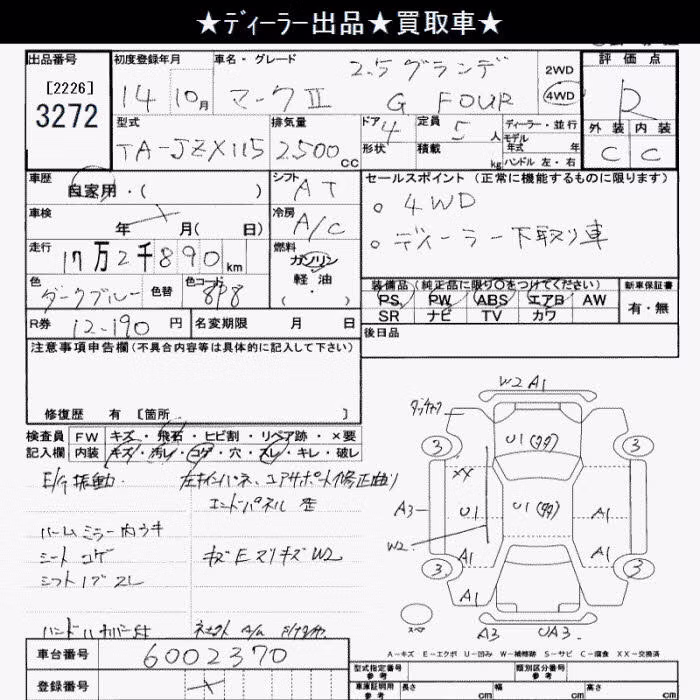 ★ディーラー出品★買取車★
出品番号 初度登録年月 車名・グレード 評価点
[2226]
3272
14 10月 マークⅡ 2.5グランデ G FOUR 2WD 4WD R
型式 排気量 ドア 4 定員 5 人 ディーラー・並行
外装 内装
TA-JZX115 2500cc 形状 積載 kg モデル年式 年 ハンドル 左・右
C C
車歴 自家用・( ) シフト AT セールスポイント(正常に機能するものに限ります)
車検 年 月( 日) 冷房 A/C
。4WD
。ディーラー下取り車
走行 17万2千890km 燃料 ガソリン 軽油 ( ・ )
色 ダークブルー 色替 色コード 8P8
装備品(純正品に限り○をつけてください) 新車保証書
PS PW ABS エアB AW 有・無
SR ナビ TV カワ
R券 12-190円 名変期限 月 日 後日品
注意事項申告欄(不具合内容等は具体的に記入して下さい)
修復歴 有 [箇所 ]
検査員 FW キズ・飛石・ヒビ割・リペア跡・×要
記入欄 内装 キズ・汚レ・コゲ・穴・スレ・キレ・破レ
E/G振動 左インパネ、コアサポート修正曲り
エンドパネル 歪
ルームミラー内ウキ
シートコゲ キズEスリキズW2
シフトノブスレ
W2 A1
タッチアップ
3 3
U1
XX
A3 U1 U1 A1
W2
A1 A1
3 3
A1
スペア A3 UA3
A-キズ E-エクボ U-凹み W-補修跡 S-サビ C-腐食 XX-交換済
車台番号 6002370
登録番号
型式指定番号 参考 類別区分番号 参考
車庫証明用 参考 長さ cm 幅 cm 高さ cm